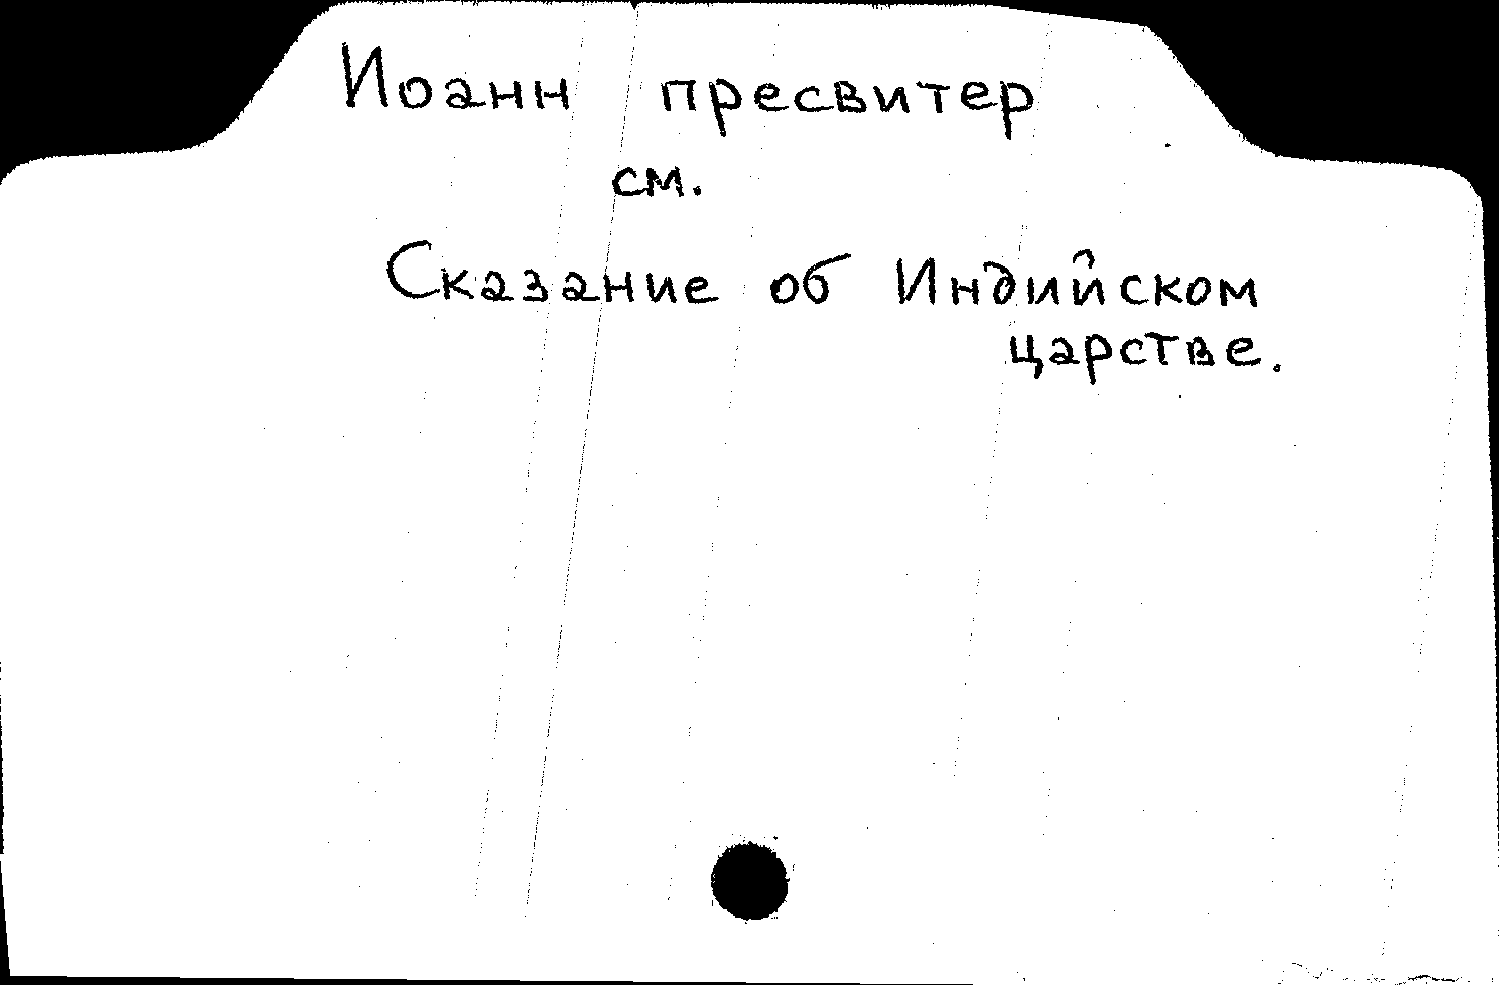 Иоанн пресвитер
см.
Сказание об Индийском
царстве.